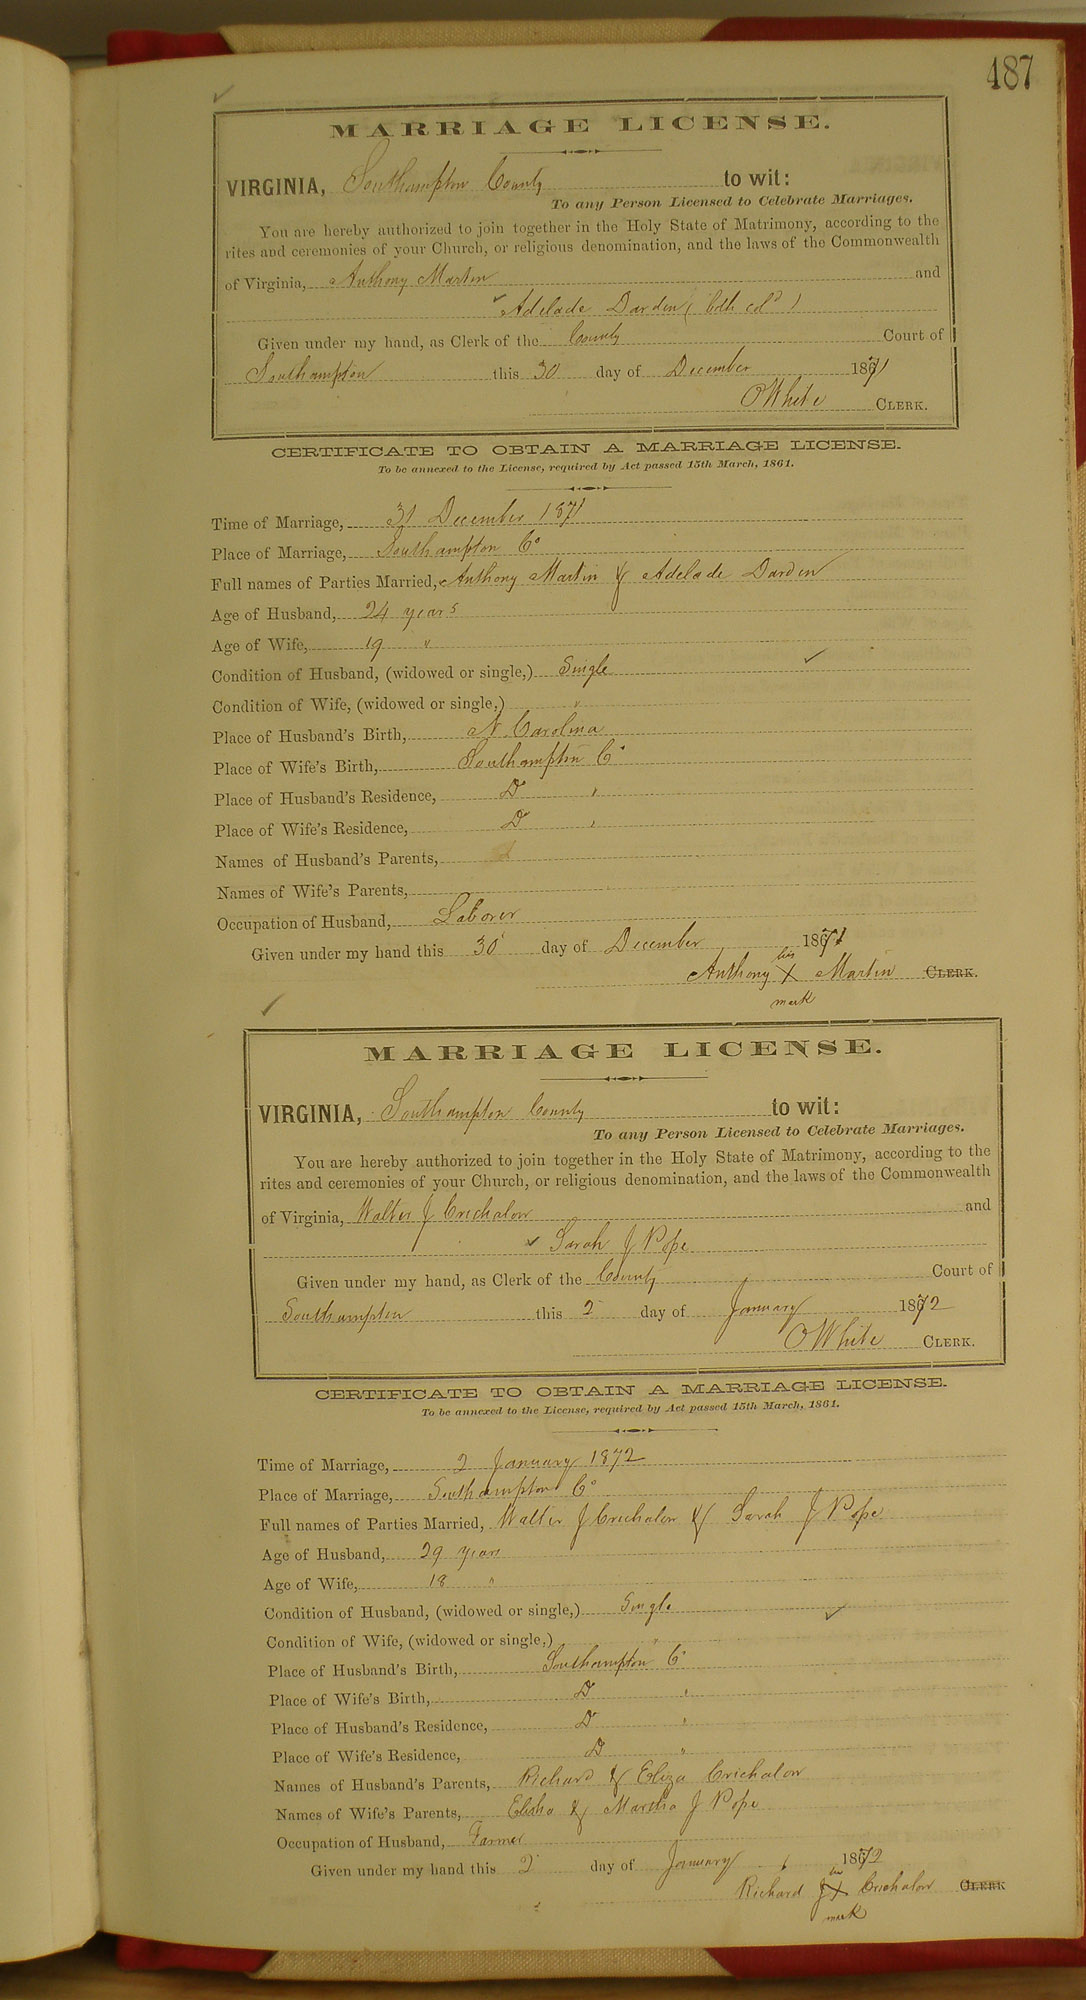 487
MARRIAGE LICENSE.
VIRGINIA, Southampton County to wit:
To any Person Licensed to Celebrate Marriages.
You are hereby authorized to join together in the Holy State of Matrimony, according to the
rites and ceremonies of your Church, or religious denomination, and the laws of the Commonwealth
of Virginia, Anthony Martin and
Adelade Darden ( both cold )
Given under my hand, as Clerk of the County Court of
Southampton this 30 day of December 1871
O White CLERK.
CERTIFICATE TO OBTAIN A MARRIAGE LICENSE.
To be annexed to the License, required by Act passed 15th March, 1861.
Time of Marriage, 31 December 1871
Place of Marriage, Southampton Co
Full names of Parties Married, Anthony Martin & Adelade Darden
Age of Husband, 24 years
Age of Wife, 19 "
Condition of Husband, (widowed or single,) Single
Condition of Wife, (widowed or single,) "
Place of Husband's Birth, N Carolina
Place of Wife's Birth, Southampton Co
Place of Husband's Residence, Do "
Place of Wife's Residence, Do "
Names of Husband's Parents,
Names of Wife's Parents,
Occupation of Husband, Laborer
Given under my hand this 30 day of December 1871
his
Anthony X Martin CLERK.
mark
MARRIAGE LICENSE.
VIRGINIA, Southampton County to wit:
To any Person Licensed to Celebrate Marriages.
You are hereby authorized to join together in the Holy State of Matrimony, according to the
rites and ceremonies of your Church, or religious denomination, and the laws of the Commonwealth
of Virginia, Walter J Crichalow and
Sarah J Pope
Given under my hand, as Clerk of the County Court of
Southampton this 2 day of January 1872
O White CLERK.
CERTIFICATE TO OBTAIN A MARRIAGE LICENSE.
To be annexed to the License, required by Act passed 15th March, 1861.
Time of Marriage, 2 January 1872
Place of Marriage, Southampton Co
Full names of Parties Married, Walter J Crichalow & Sarah J Pope
Age of Husband, 29 years
Age of Wife, 18 "
Condition of Husband, (widowed or single,) Single
Condition of Wife, (widowed or single,) "
Place of Husband's Birth, Southampton Co
Place of Wife's Birth, Do "
Place of Husband's Residence, Do "
Place of Wife's Residence, Do "
Names of Husband's Parents, Richard & Eliza Crichalow
Names of Wife's Parents, Elisha & Martha J Pope
Occupation of Husband, Farmer
Given under my hand this 2 day of January 1872
his
Richard J X Crichalow CLERK
mark